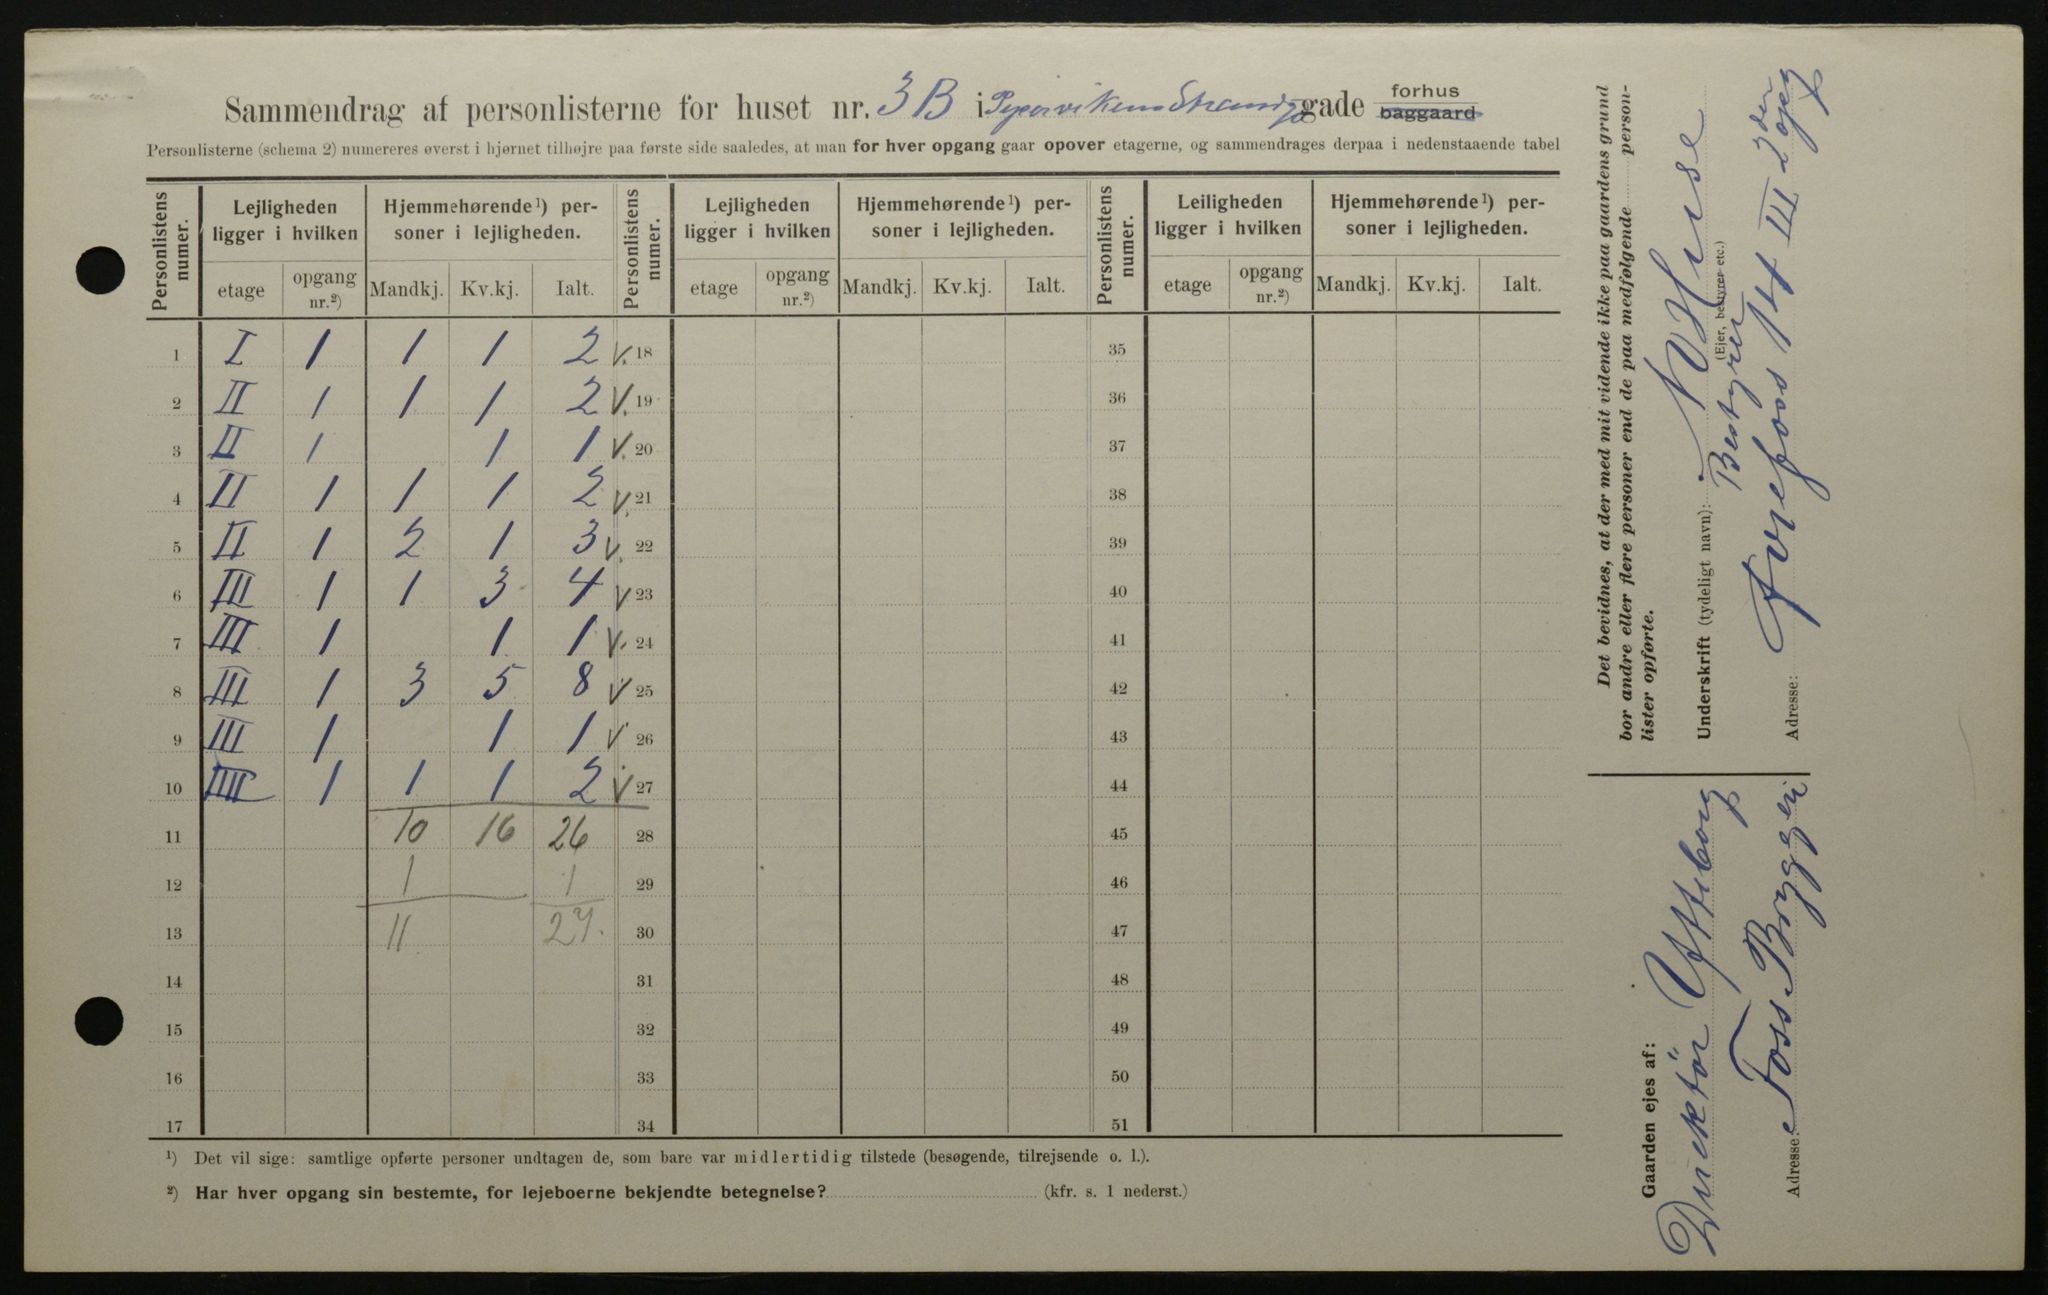 Sammendrag af personlisterne for huset nr. 3B i Pipervikens Strandgade forhus ~~baggaard~~
Personlisterne (schema 2) numereres øverst i hjørnet tilhøjre paa første side saaledes, at man for hver opgang gaar opover etagerne, og sammendrages derpaa i nedenstaaende tabel
Personlistens numer. Lejligheden ligger i hvilken Hjemmehørende¹) personer i lejligheden. Personlistens numer. Lejligheden ligger i hvilken Hjemmehørende¹) personer i lejligheden. Personlistens numer. Leiligheden ligger i hvilken Hjemmehørende¹) personer i lejligheden.
etage opgang nr.²) Mandkj. Kv.kj. Ialt. etage opgang nr.²) Mandkj. Kv.kj. Ialt. etage opgang nr.²) Mandkj. Kv.kj. Ialt.
1 I 1 1 1 2 V. 18 35
2 II 1 1 1 2 V. 19 36
3 II 1 1 1 V. 20 37
4 II 1 1 1 2 V. 21 38
5 II 1 2 1 3 V. 22 39
6 III 1 1 3 4 V 23 40
7 III 1 1 1 V. 24 41
8 III 1 3 5 8 V 25 42
9 III 1 1 1 V 26 43
10 IIII 1 1 1 2 V 27 44
11 10 16 26 28 45
12 1 1 29 46
13 11 27. 30 47
14 31 48
15 32 49
16 33 50
17 34 51
¹) Det vil sige: samtlige opførte personer undtagen de, som bare var midlertidig tilstede (besøgende, tilrejsende o. l.).
²) Har hver opgang sin bestemte, for lejeboerne bekjendte betegnelse? (kfr. s. 1 nederst.)
Det bevidnes, at der med mit vidende ikke paa gaardens grund
bor andre eller flere personer end de paa medfølgende person-
lister opførte.
Underskrift (tydeligt navn): N Huse
Bestyrer
(Ejer, bestyrer etc.)
Adresse: 14 III 2den opg
Gaarden ejes af:
Direktör
Adresse: Foss Bryggeri